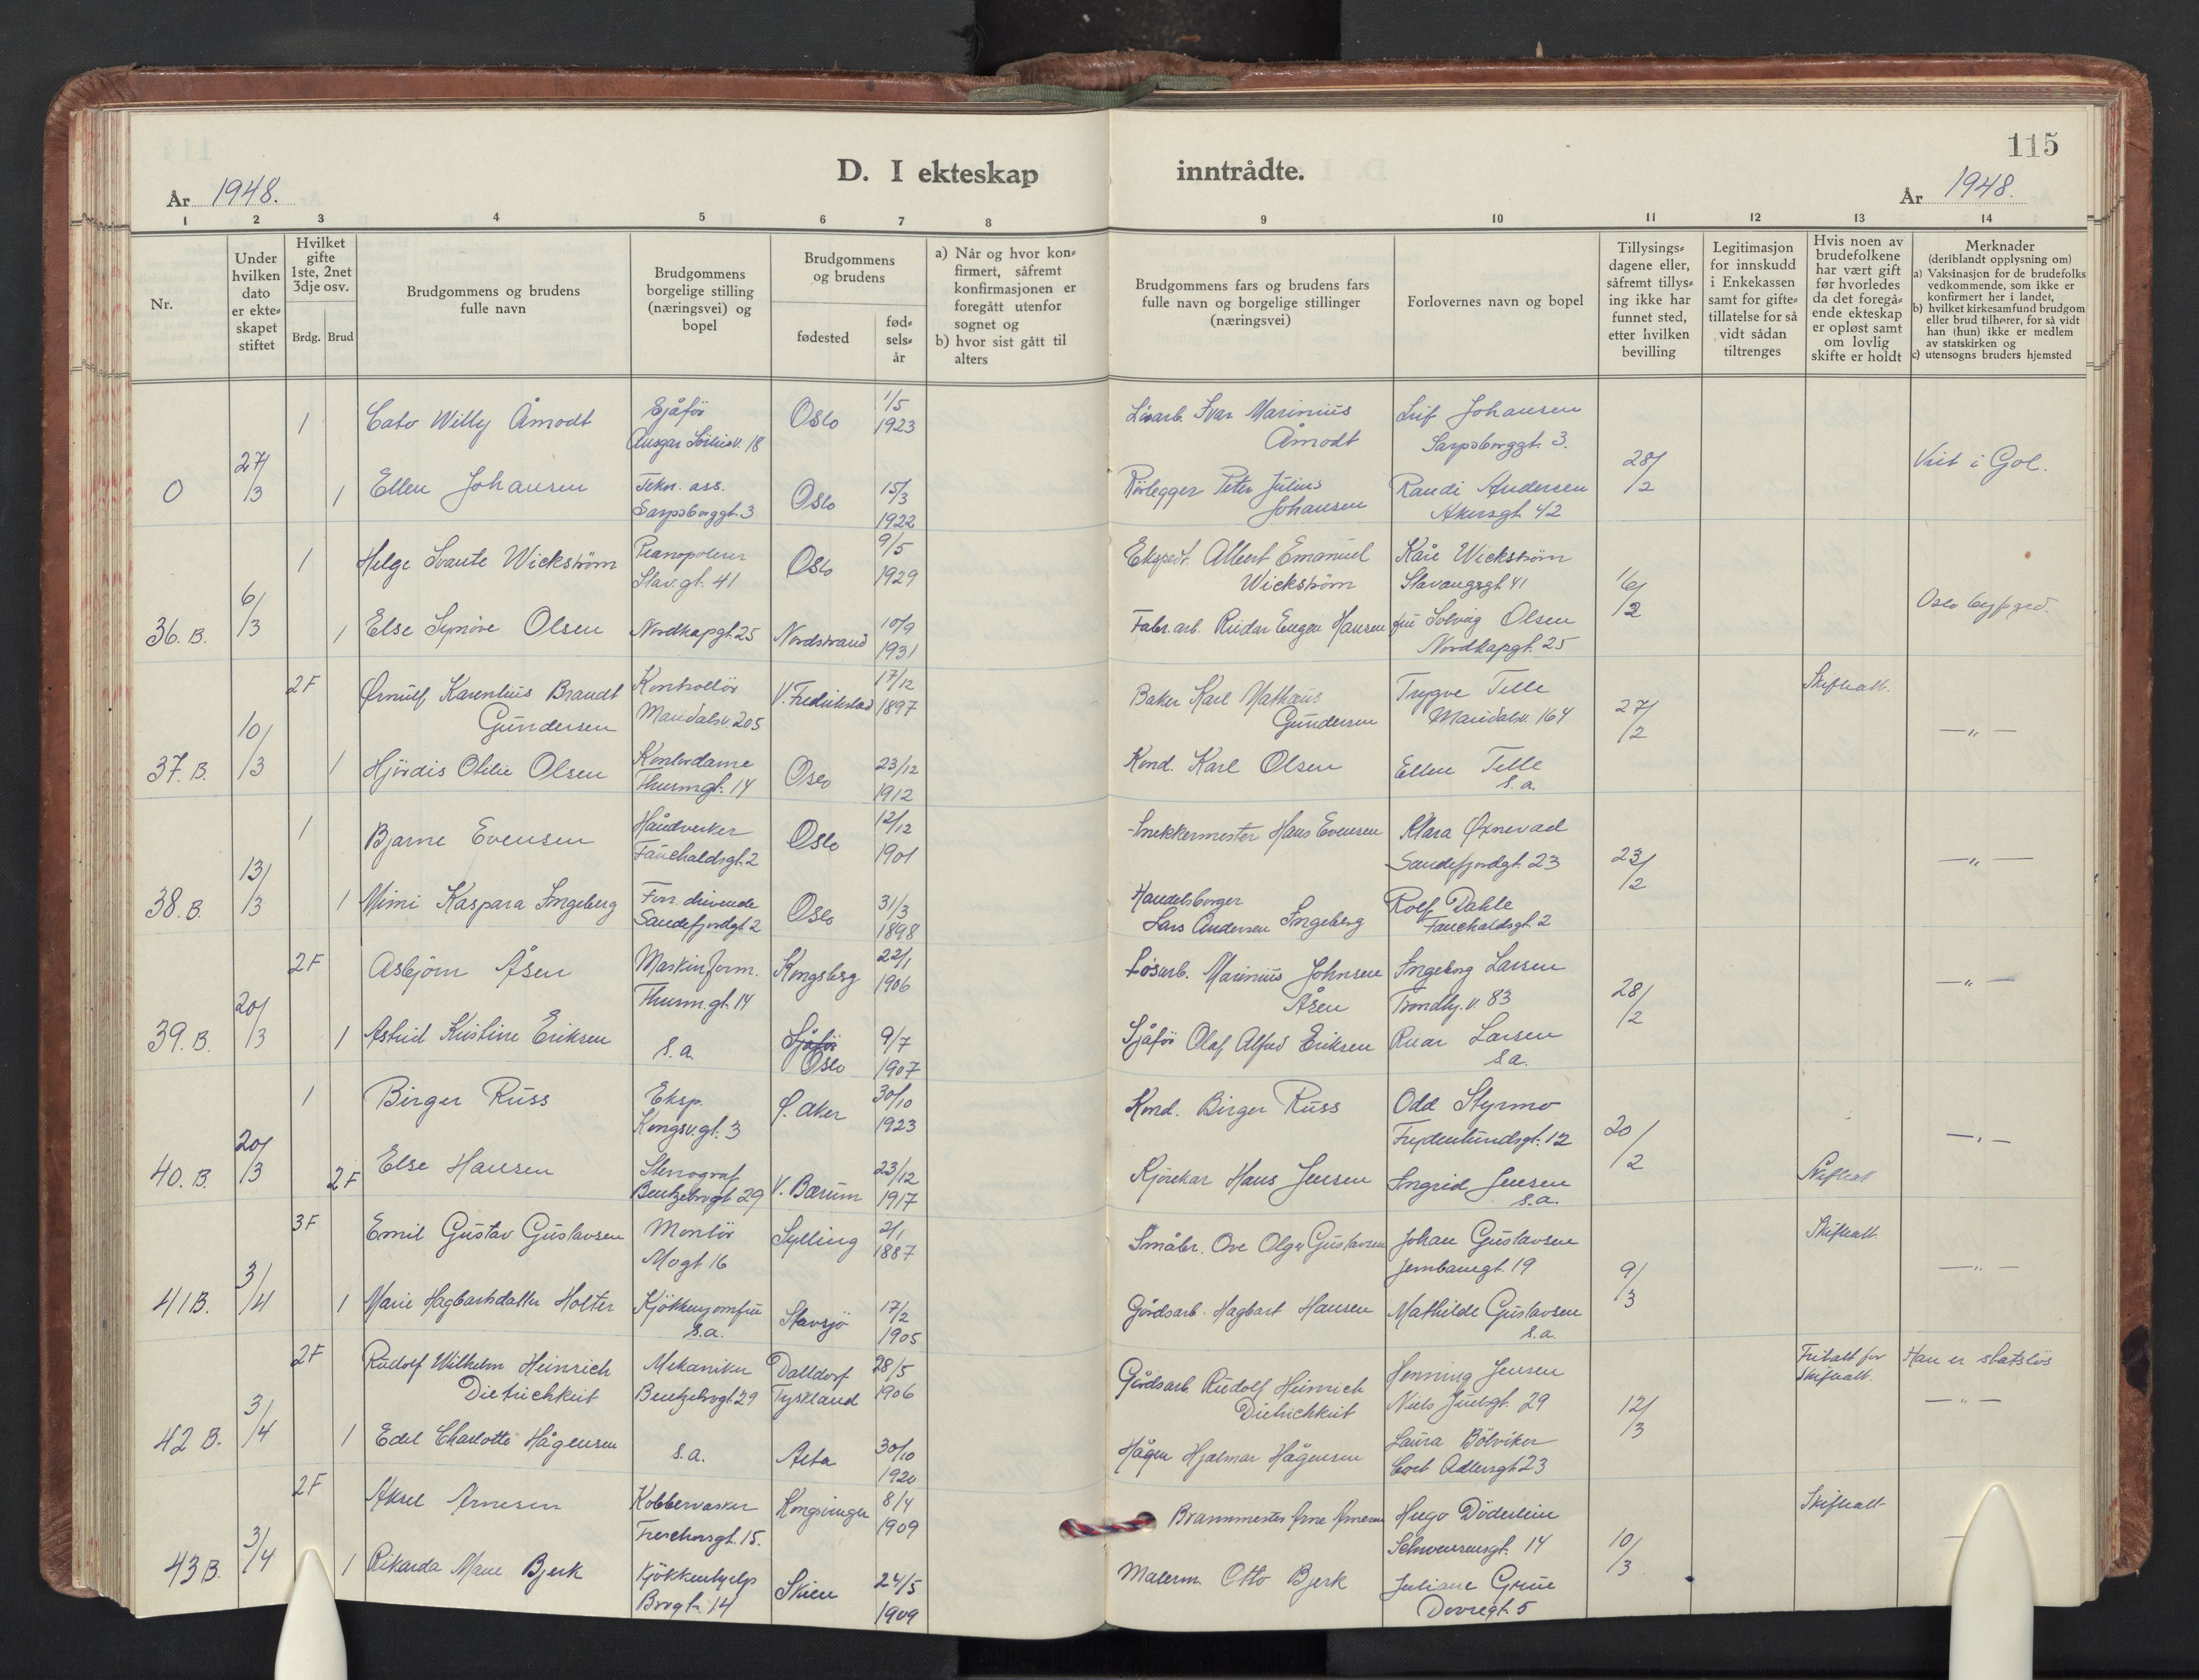 115
D. I ekteskap inntrådte.
År 1948.
År 1948.
1 2 3 4 5 6 7 8 9 10 11 12 13 14
Nr.
Under hvilken dato er ekteskapet stiftet
Hvilket gifte 1ste, 2net 3dje osv.
Brdg. Brud
Brudgommens og brudens fulle navn
Brudgommens borgelige stilling (næringsvei) og bopel
Brudgommens og brudens
fødested
fødselsår
a) Når og hvor konfirmert, såfremt konfirmasjonen er foregått utenfor sognet og
b) hvor sist gått til alters
Brudgommens fars og brudens fars fulle navn og borgelige stillinger (næringsvei)
Forlovernes navn og bopel
Tillysingsdagene eller, såfremt tillysing ikke har funnet sted, etter hvilken bevilling
Legitimasjon for innskudd i Enkekassen samt for giftetillatelse for så vidt sådan tiltrenges
Hvis noen av brudefolkene har vært gift før hvorledes da det foregående ekteskap er opløst samt om lovlig skifte er holdt
Merknader
(deriblandt opplysning om)
a) Vaksinasjon for de brudefolks vedkommende, som ikke er konfirmert her i landet,
b) hvilket kirkesamfund brudgom eller brud tilhører, for så vidt han (hun) ikke er medlem av statskirken og
c) utensogns bruders hjemsted
0 27/3 28/2 Viet i Gol.
1 Cato Willy Åmodt Sjåför Ansgar Sörliesv. 18 Oslo 1/5 1923 Ivar Marinius Åmodt Leif Johansen Sarpsborggt. 3.
1 Ellen Johansen Tekn. ass. Sarpsborggt. 3 Oslo 15/3 1922 Rörlegger Peter Julius Johansen Randi Andersen Akersgt 42
36. B. 6/3 1/2 Oslo byfgd.
1 Helge Svante Wickström Pianopolerer Stav.gt. 41 Oslo 9/5 1929 Eksped. Albert Emanuel Wickström Kåre Wickström Stavangergt 41
1 Else Synöve Olsen Nordkapgt. 25 Nordstrand 10/9 1931 Fabr. arb. Reidar Eugen Hansen fru Solveig Olsen Nordkapgt. 25
37. B. 10/3 27/2 — " —
2F Ørnulf Karenlius Brandt Gundersen Kontrollör Maridalsv. 205 V. Fredrikstad 17/12 1897 Baker Karl Mathæus Gundersen Trygve Telle Maridalsv. 164 Skifteatt.
1 Hjördis Otilie Olsen Kontordame Thurmgt. 14 Oslo 23/12 1912 Kond. Karl Olsen Ellen Telle s.a.
38. B. 13/3 23/2 — " —
1 Bjarne Evensen Håndverker Fauchaldsgt. 2 Oslo 12/12 1901 Snekkermester Hans Evensen Klara Øxnevad Sandefjordgt. 23
1 Mimi Kaspara Ingeberg Forr. drivende Sandefjordgt. 2 Oslo 31/3 1898 Handelsborger Lars Andersen Ingeberg Rolf Dahle Fauchaldsgt. 2
39. B. 20/3 28/2 — " —
2F Asbjörn Åsen Maskinform. Thurm.gt. 14 Kongsberg 22/1 1906 Løsarb. Marinius Johnsen Åsen Ingeborg Larsen Trondhj.v 83
1 Astrid Kristine Eriksen s.a. Sjåför Oslo 9/7 1907 Sjåför Olaf Alfred Eriksen Roar Larsen s.a.
40. B. 20/3 20/2 — " —
1 Birger Russ Eksp. Kongsv.gt. 3 Ö. Aker 30/10 1923 Kond. Birger Russ Odd Styrmo Frydenlundsgt. 12
2F Else Hansen Stenograf Bentzebrogt 29 V. Bærum 23/12 1917 Kjörekar Hans Jensen Ingrid Jensen s.a. Skifteat
41 B. 3/4 9/3 — " —
3F Emil Gustav Gustavsen Montör Mogt 16 Sylling 2/1 1887 Småbr. Ove Olger Gustavsen Johan Gustavsen Jernbanegt. 19 Skifteatt.
1 Marie Hagbartsdatter Holter Kjökkenjomfru s.a. Stavsjö 17/2 1905 Gårdsarb. Hagbart Hansen Mathilde Gustavsen s.a.
42 B. 3/4 12/3 — " —
2F Rudolf Wilhelm Heinrich Dietrichkeit Mekaniker Bentzebrogt. 29 Dalldorf Tyskland 28/5 1906 Gårdsarb. Rudolf Heinrich Dietrichkeit Henning Jensen Niels Juelsgt. 29 Fritatt for Skifteatt. Han er statsløs
1 Edel Charlotte Hågensen s.a. Alta 30/10 1920 Hågen Hjalmar Hågensen Laura Bölviken Cort Adlersgt 23
43 B. 3/4 10/3
2F Aksel Arnesen Kobbervasker Frerchersgt. 15. Kongsvinger 8/4 1909 Brannmester Arne Arnesen Hugo Döderlein Schwensensgt. 14 Skifteatt
1 Rikarda Marie Bjerk Kjökkenhjelp Brogt. 14 Skien 24/5 1909 Malerm. Otto Bjerk Juliane Grüe Dovregt. 5